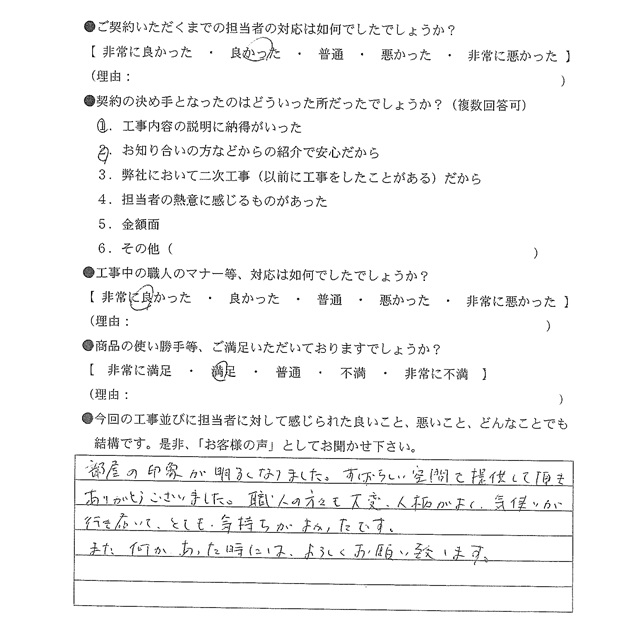 ●ご契約いただくまでの担当者の対応は如何でしたでしょうか？
【 非常に良かった ・ 良かった ・ 普通 ・ 悪かった ・ 非常に悪かった 】
（理由： ）
●契約の決め手となったのはどういった所だったでしょうか？（複数回答可）
1．工事内容の説明に納得がいった
2．お知り合いの方などからの紹介で安心だから
3．弊社において二次工事（以前に工事をしたことがある）だから
4．担当者の熱意に感じるものがあった
5．金額面
6．その他（ ）
●工事中の職人のマナー等、対応は如何でしたでしょうか？
【 非常に良かった ・ 良かった ・ 普通 ・ 悪かった ・ 非常に悪かった 】
（理由： ）
●商品の使い勝手等、ご満足いただいておりますでしょうか？
【 非常に満足 ・ 満足 ・ 普通 ・ 不満 ・ 非常に不満 】
（理由： ）
●今回の工事並びに担当者に対して感じられた良いこと、悪いこと、どんなことでも
結構です。是非、「お客様の声」としてお聞かせ下さい。
部屋の印象が明るくなりました。すばらしい空間で提供して頂き
ありがとうございました。職人の方々も大変、人柄がよく、気使いが
行き届いて、とても気持ちがよかったです。
また何かあった時には、よろしくお願い致します。